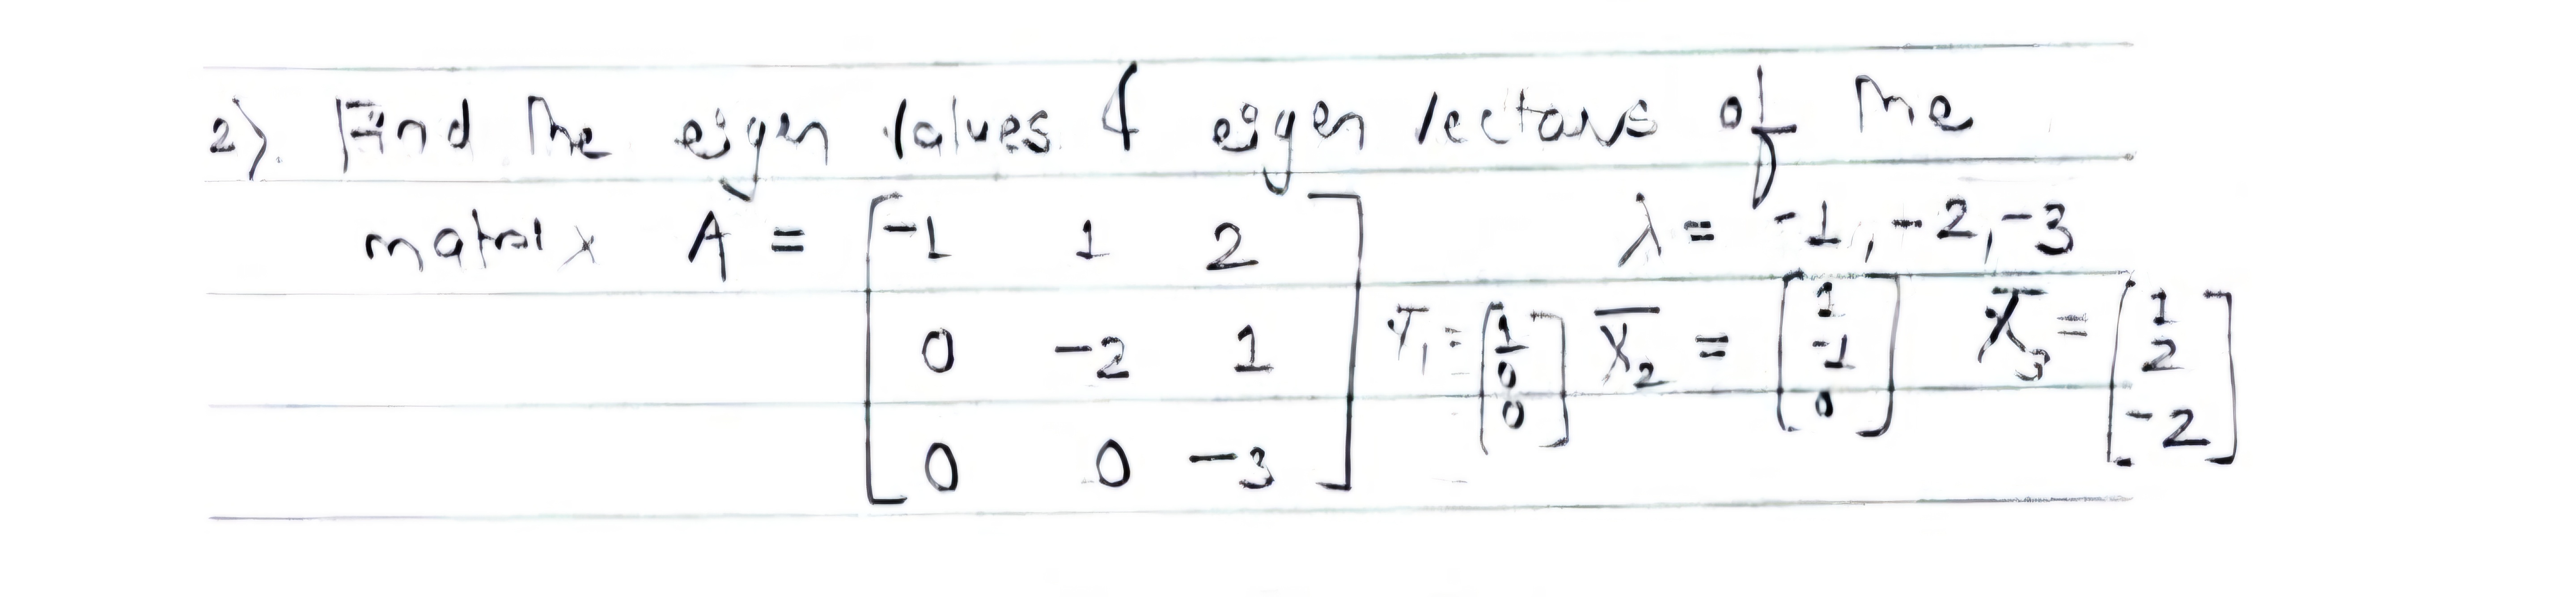 2). Find the eigen values & eigen vectors of the
matrix A = [-1 1 2 λ = -1, -2, -3
0 -2 1 X̅₁ = [1 0 0] X̅₂ = [1 -1 0] X̅₃ = [1 2 -2]
0 0 -3]